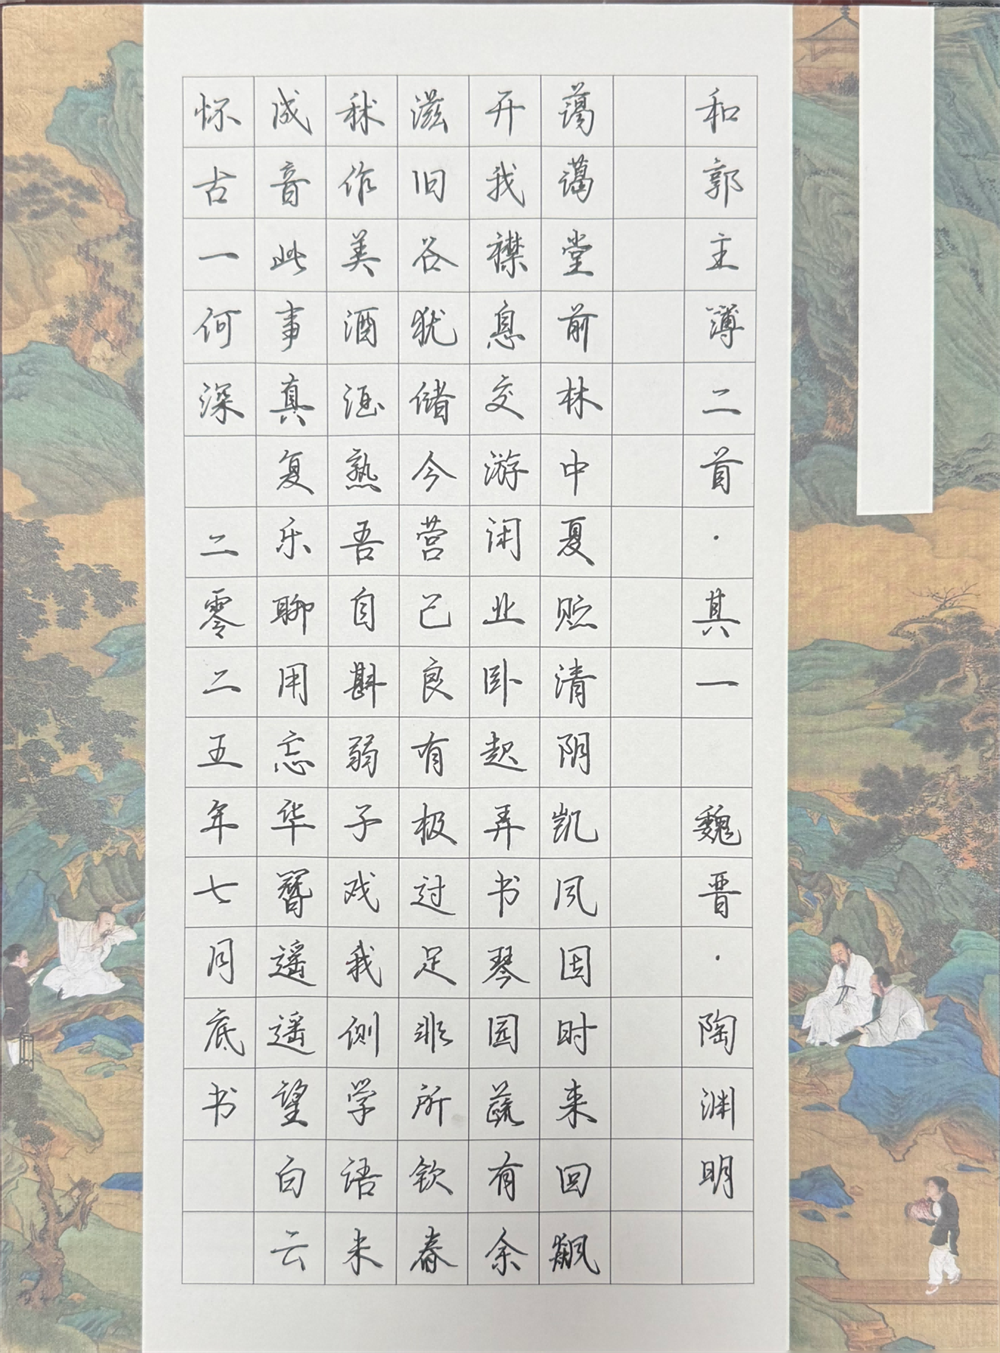 和郭主簿二首·其一 魏晋·陶渊明
蔼蔼堂前林中夏贮清阴凯风因时来回飙
开我襟息交游闲业卧起弄书琴园蔬有余
滋旧谷犹储今营己良有极过足非所钦舂
秫作美酒酒熟吾自斟弱子戏我侧学语未
成音此事真复乐聊用忘华簪遥遥望白云
怀古一何深 二零二五年七月底书